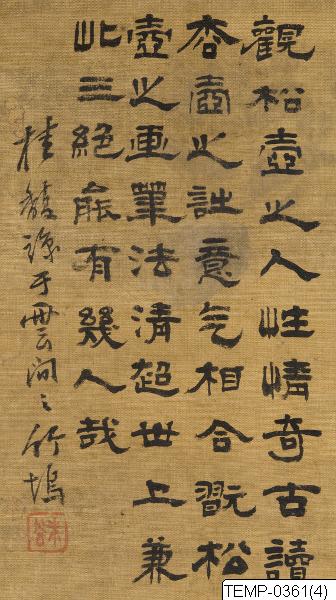 觀松壺之人性情奇古讀
枩壺之詩意气相合翫松
壺之画筆法清超世上兼
此三絶能有幾人哉
桂馥識于雲間之竹塢
TEMP-0361(4)